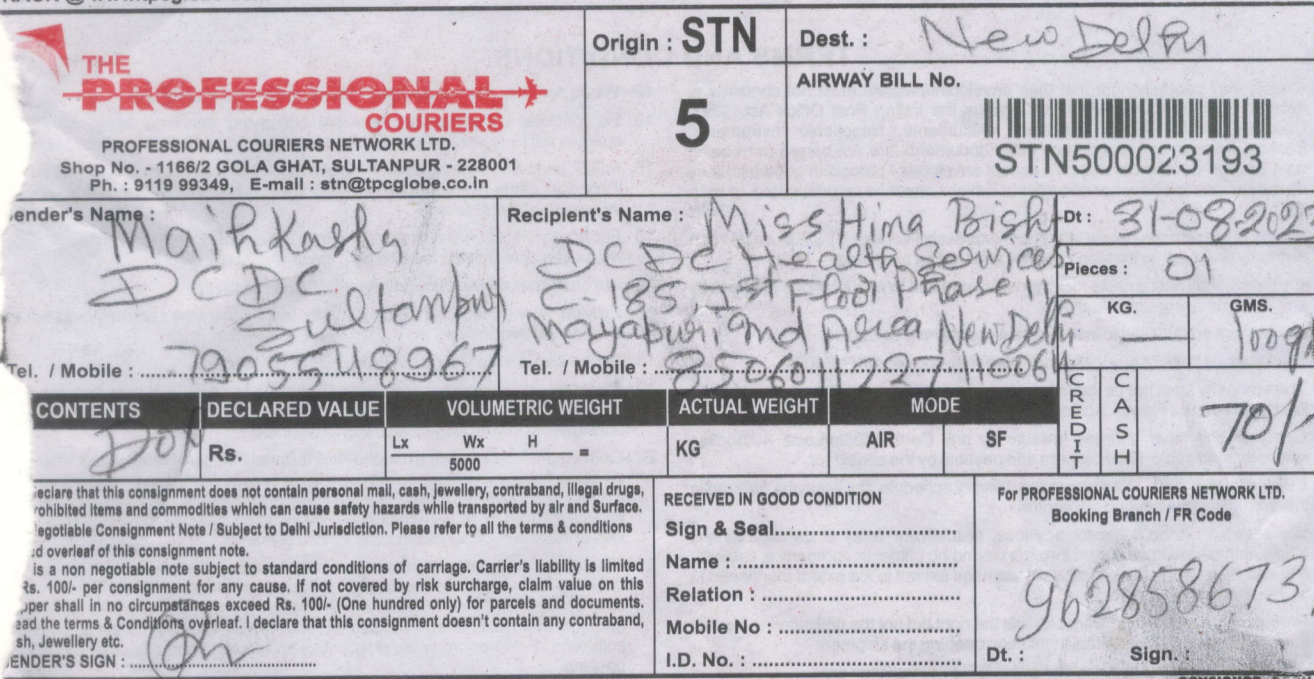 THE
PROFESSIONAL
COURIERS
PROFESSIONAL COURIERS NETWORK LTD.
Shop No. - 1166/2 GOLA GHAT, SULTANPUR - 228001
Ph. : 9119 99349, E-mail : stn@tpcglobe.co.in
Origin : STN
5
Dest. : New Delhi
AIRWAY BILL No.
STN500023193
ender's Name :
DCDC
Sultanpur
Tel. / Mobile : 7905548967
Recipient's Name : Miss Hina Bisht
DCDC Health Services
C-185, 1st Floor Phase II
Mayapuri Ind Area New Delhi
Tel. / Mobile : 8506011227 110064
Dt : 31-08-202
Pieces : 01
KG. GMS.
— 100gm
CREDIT CASH 70/-
CONTENTS DECLARED VALUE VOLUMETRIC WEIGHT ACTUAL WEIGHT MODE
Rs. Lx Wx H = KG AIR SF
5000
eclare that this consignment does not contain personal mail, cash, jewellery, contraband, illegal drugs,
rohibited items and commodities which can cause safety hazards while transported by air and Surface.
egotiable Consignment Note / Subject to Delhi Jurisdiction. Please refer to all the terms & conditions
d overleaf of this consignment note.
is a non negotiable note subject to standard conditions of carriage. Carrier's liability is limited
Rs. 100/- per consignment for any cause. If not covered by risk surcharge, claim value on this
per shall in no circumstances exceed Rs. 100/- (One hundred only) for parcels and documents.
ead the terms & Conditions overleaf. I declare that this consignment doesn't contain any contraband,
sh, Jewellery etc.
ENDER'S SIGN :
RECEIVED IN GOOD CONDITION
Sign & Seal
Name :
Relation :
Mobile No :
I.D. No. :
For PROFESSIONAL COURIERS NETWORK LTD.
Booking Branch / FR Code
962858673
Dt. : Sign. :